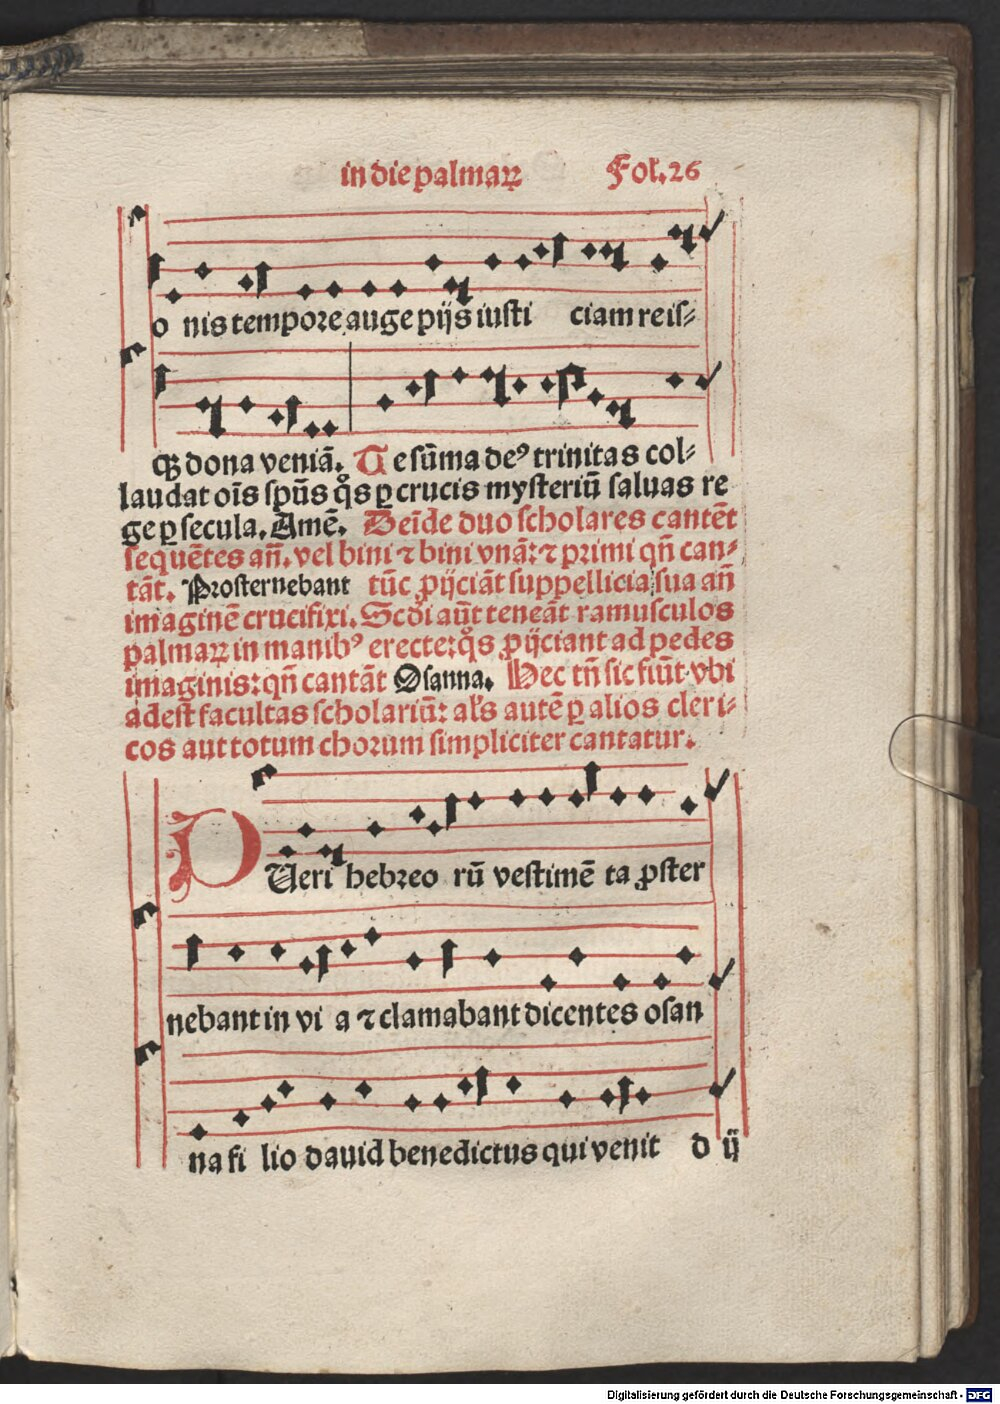 in die palmaꝝ Fol. 26
o nis tempore auge pijs iusti ciam reis⸗
qꝫ dona veniã. Te sũma deꝰ trinitas col⸗
laudat oĩs spũs q̃s ꝑ crucis mysteriũ saluas re
ge ꝑ secula. Amẽ. Deĩde duo scholares cantẽt
sequẽtes añ. vel bini ⁊ bini vnã: ⁊ primi qñ can⸗
tãt. Prosternebant tũc ꝓijciãt suppellicia sua añ
imaginẽ crucifixi. Scd̃i aũt teneãt ramusculos
palmaꝝ in manibꝰ erecte: q̃s ꝓijciant ad pedes
imaginis: qñ cantãt Osanna. Hec tñ sic fiũt vbi
adest facultas scholariũ: al̃s autẽ ꝑ alios cleri⸗
cos aut totum chorum simpliciter cantatur.
PUeri hebreo rũ vestimẽ ta ꝓster
nebant in vi a ⁊ clamabant dicentes osan
na fi lio dauid benedictus qui venit d ij
Digitalisierung gefördert durch die Deutsche Forschungsgemeinschaft - DFG